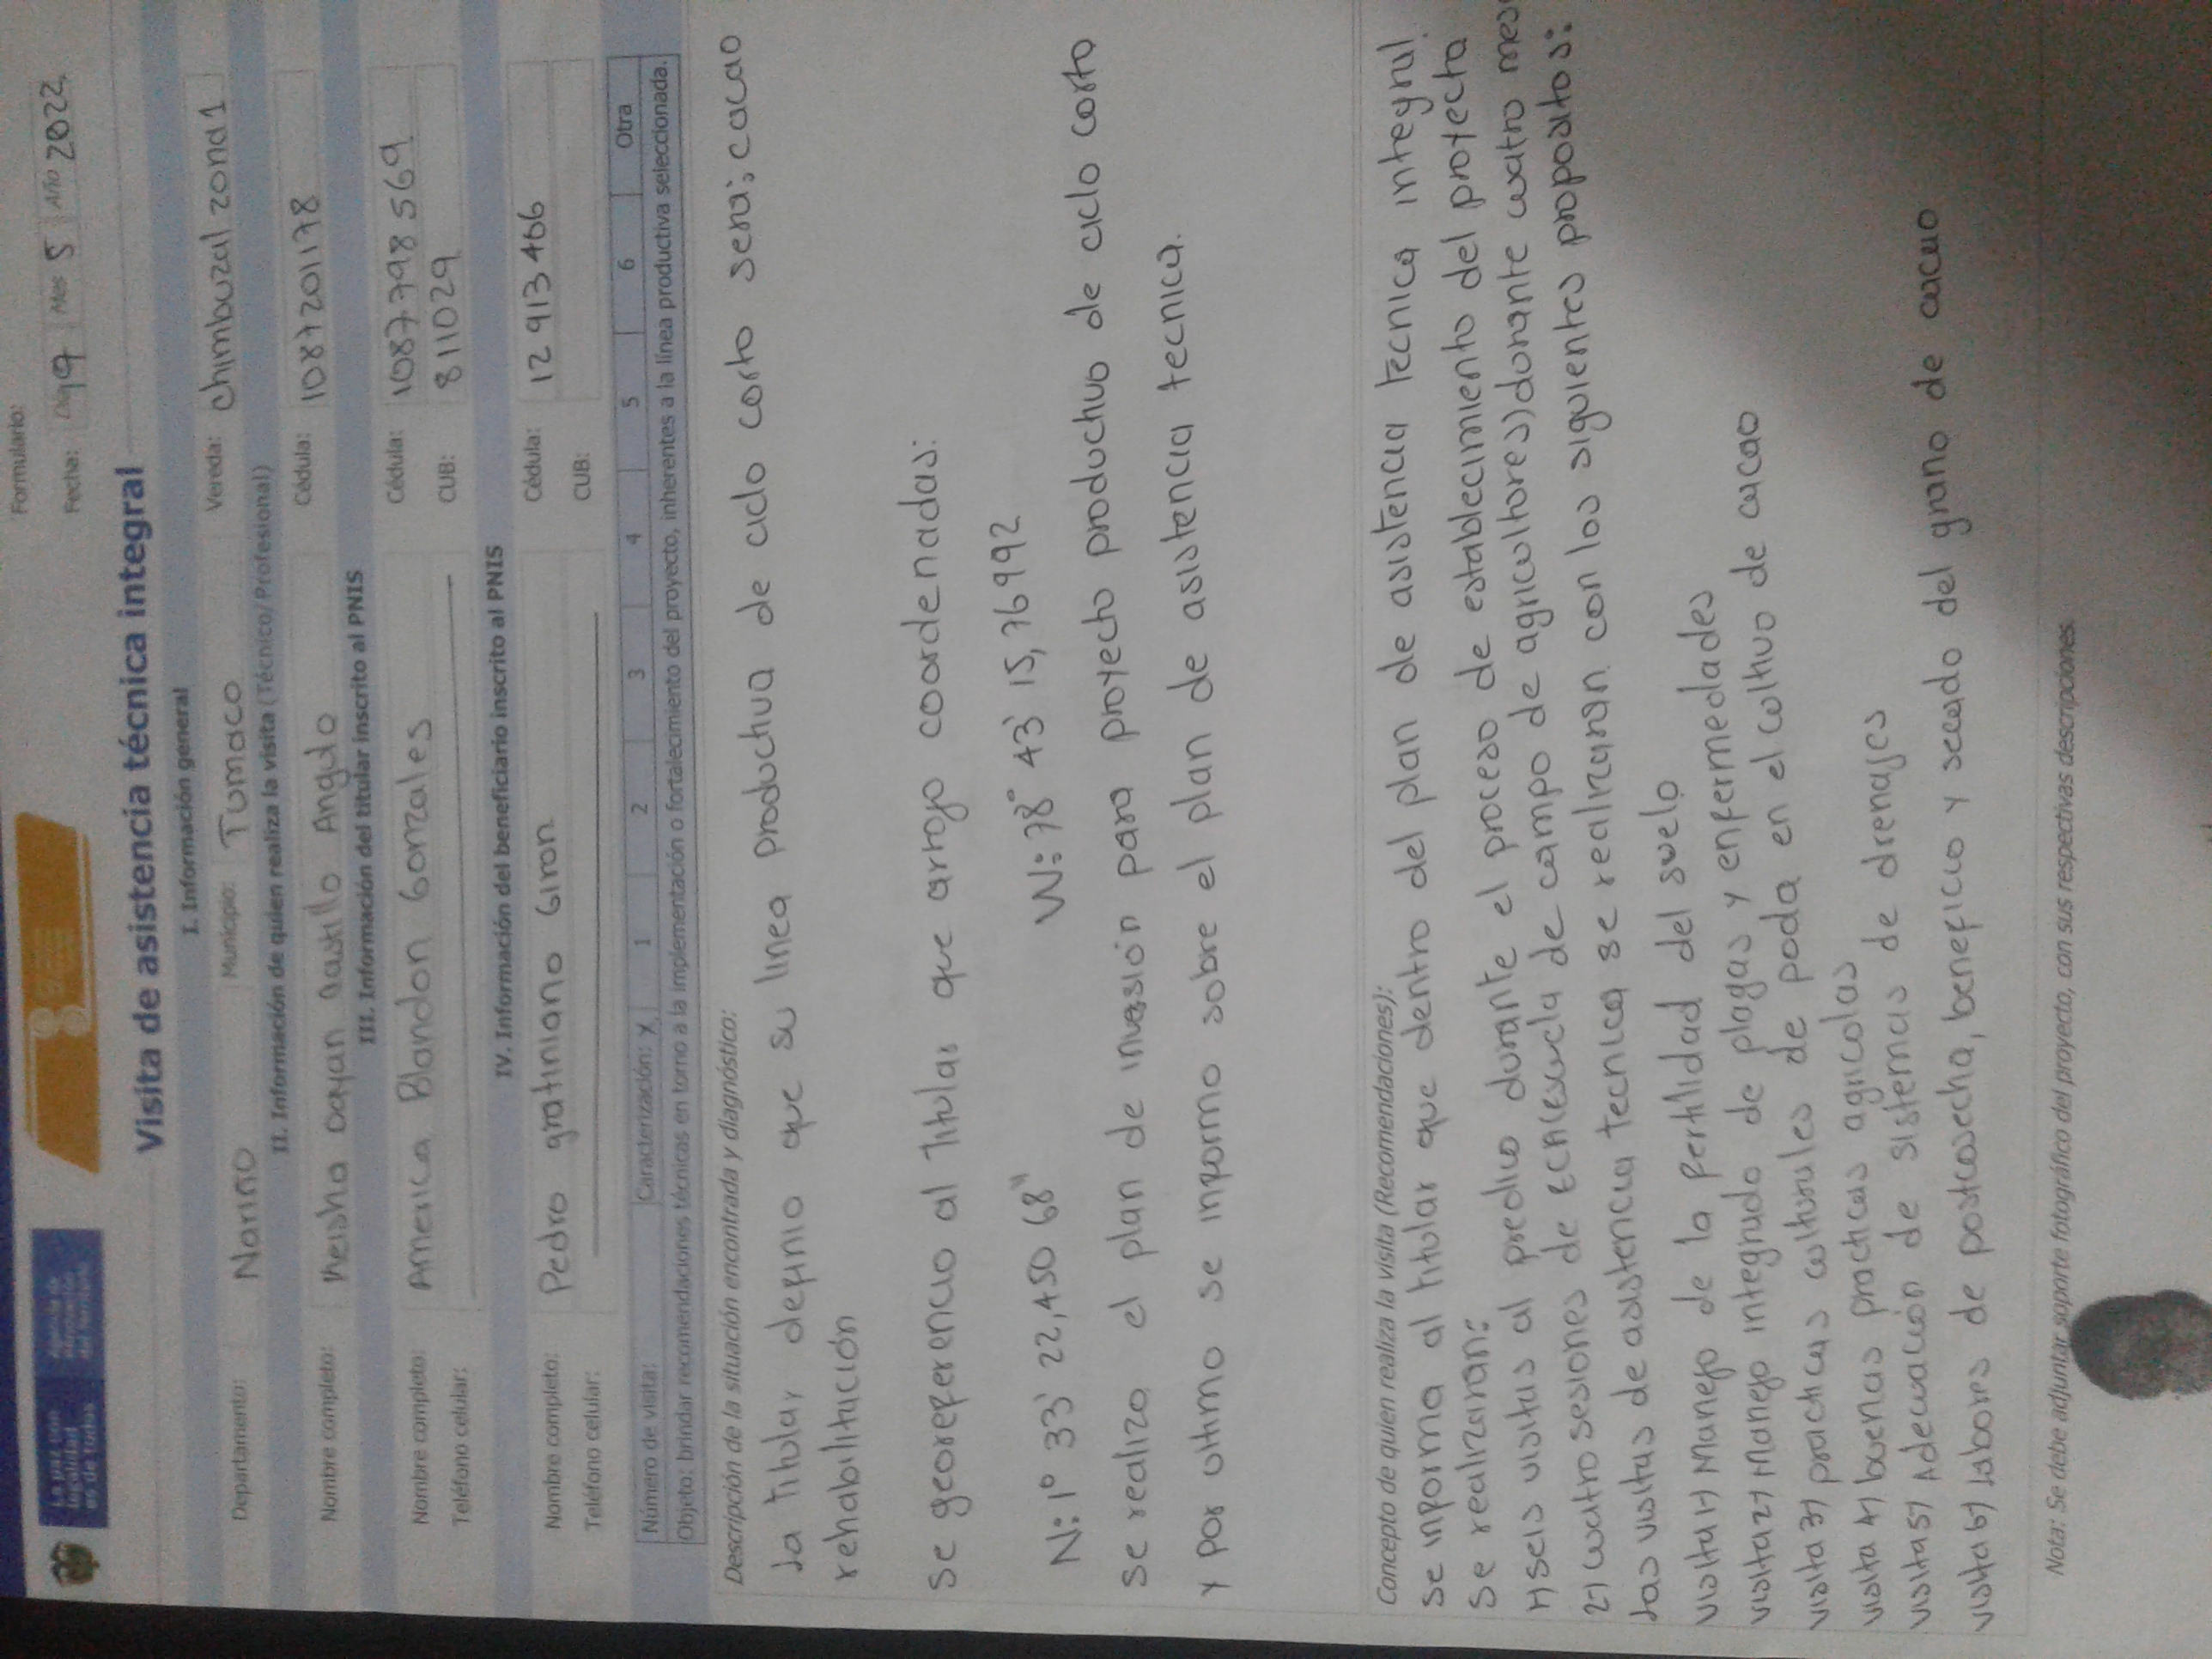 Formulario:
La paz con legalidad es de todos
Fecha: Mes 5 Año 2022
Visita de asistencia técnica integral
I. Información general
Departamento: Nariño Municipio: Tumaco Vereda: chimbuzal zona 1
II. Información de quien realiza la visita (Técnico/ Profesional)
Nombre completo: Keisha dayan castillo Angulo Cédula: 1087201178
III. Información del titular inscrito al PNIS
Nombre completo: America Blandon Gonzales Cédula: 1087798569
Teléfono celular: CUB: 811029
IV. Información del beneficiario inscrito al PNIS
Nombre completo: Pedro gratiniano Giron Cédula: 12 913 466
Teléfono celular: CUB:
Número de visita: Caracterización: X 1 2 3 4 5 6 Otra
Objeto: brindar recomendaciones técnicas en torno a la implementación o fortalecimiento del proyecto, inherentes a la línea productiva seleccionada.
Descripción de la situación encontrada y diagnóstico:
La titular definio que su linea productiva de ciclo corto sera; cacao
rehabilitación
Se georeferencio al titular que arrojo coordenadas:
N: 1° 33' 22,450 68" W: 78° 43' 15,76992
se realizo el plan de inversión para proyecto productivo de ciclo corto
y por ultimo se informo sobre el plan de asistencia tecnica.
Concepto de quien realiza la visita (Recomendaciones):
se informa al titular que dentro del plan de asistencia tecnica integral
se realizaran:
1) seis visitas al predio durante el proceso de establecimiento del proyecto
2) cuatro sesiones de ECA (escuela de campo de agricultores) durante cuatro mes
las visitas de asistencia tecnica se realizaran con los siguientes propositos:
visita 1) Manejo de la fertilidad del suelo
visita 2) Manejo integrado de plagas y enfermedades
visita 3) practicas culturales de poda en el cultivo de cacao
visita 4) buenas practicas agricolas
visita 5) Adecuación de sistemas de drenajes
visita 6) labores de postcosecha, beneficio y secado del grano de cacao
Nota: Se debe adjuntar soporte fotográfico del proyecto, con sus respectivas descripciones.